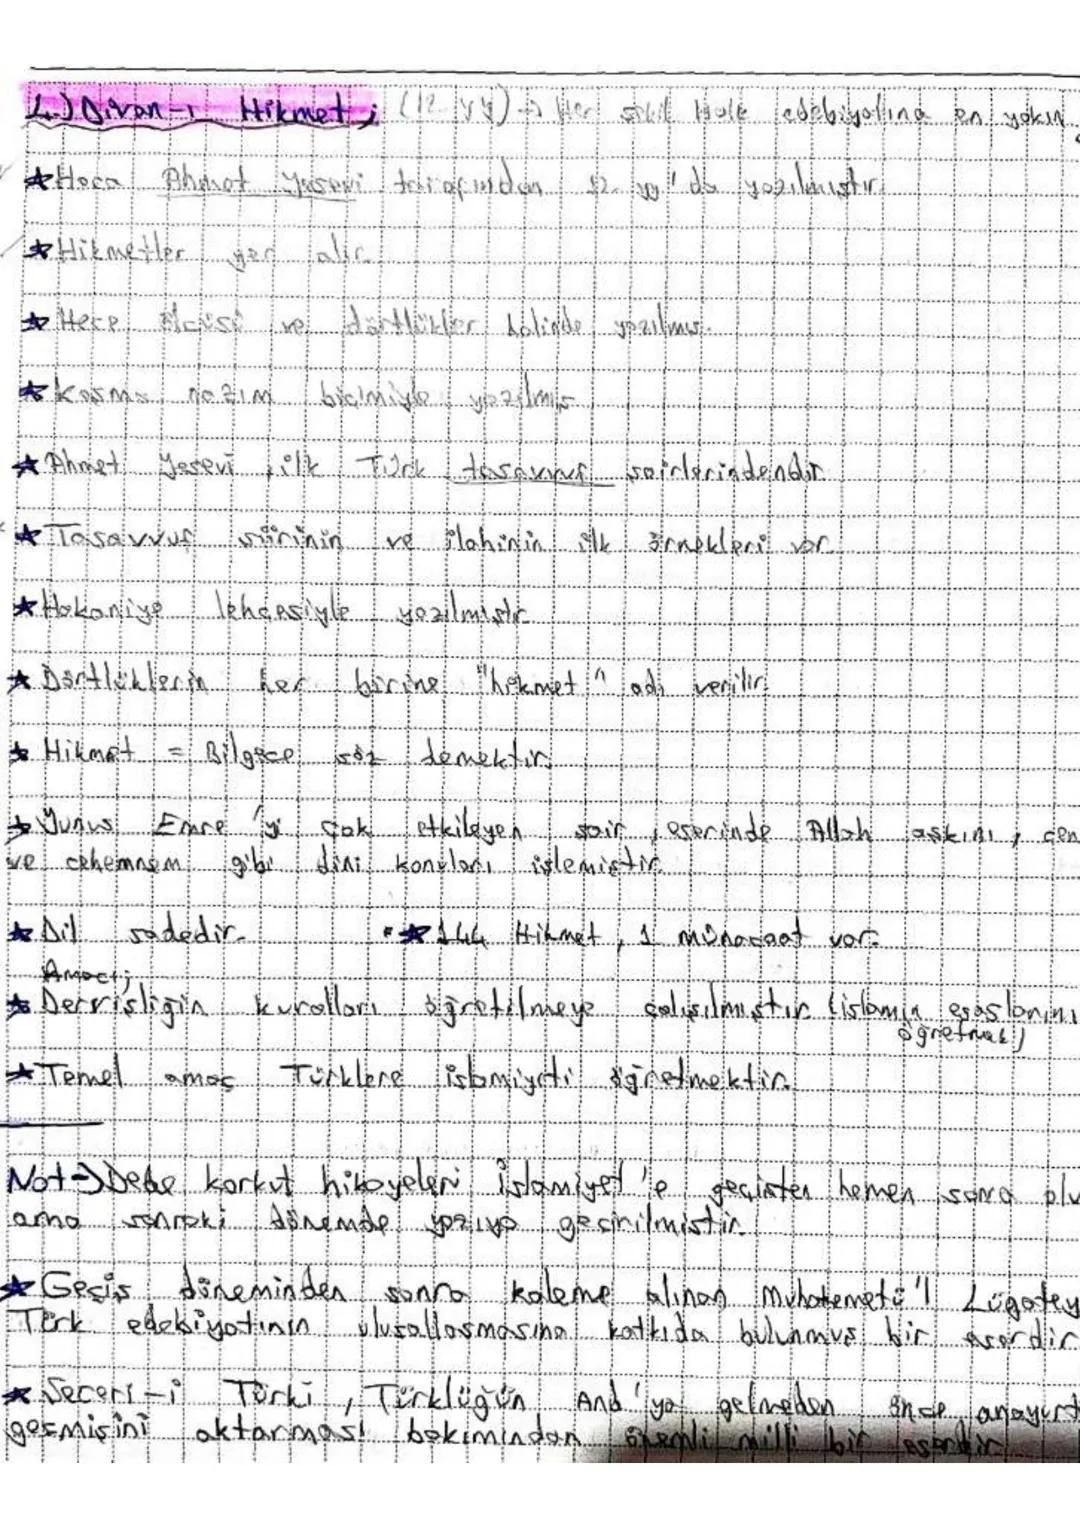 4.) Divan-ı Hikmet; (12. yy) → Her şekil Halk edebiyatına en yakın.
★ Hoca Ahmet Yesevi tarafından 12. yy'da yazılmıştır.
★ Hikmetler yer alır.
★ Hece ölçüsü ve dörtlükler halinde yazılmış.
★ Koşma nazım biçimiyle yazılmış
★ Ahmet Yesevi, ilk Türk tasavvuf şairlerindendir.
★ Tasavvuf şiirinin ve ilahinin ilk örnekleri var.
★ Hakaniye lehçesiyle yazılmıştır.
★ Dörtlüklerin her birine "hikmet" adı verilir.
★ Hikmet = Bilgece söz demektir.
★ Yunus Emre'yi çok etkileyen şair, eserinde Allah aşkını, cen
ve cehennem gibi dini konuları işlemiştir.
★ Dil sadedir. ★ 144 Hikmet, 1 münacaat var.
Amacı;
★ Dervişliğin kuralları öğretilmeye çalışılmıştır (islamın esaslarını
öğretmek)
★ Temel amaç Türklere islamiyeti öğretmektir.
Not → Dede korkut hikayeleri İslamiyet'e geçişten hemen sonra olu
ama sonraki dönemde yazıya geçirilmiştir.
★ Geçiş döneminden sonra kaleme alınan Muhakemetü'l Lügatey
Türk edebiyatının ulusallaşmasına katkıda bulunmuş bir eserdir.
★ Şecere-i Türki, Türklüğün And'ya gelmeden önce anayurt
geçmişini aktarması bakımından önemli milli bir eserdir.